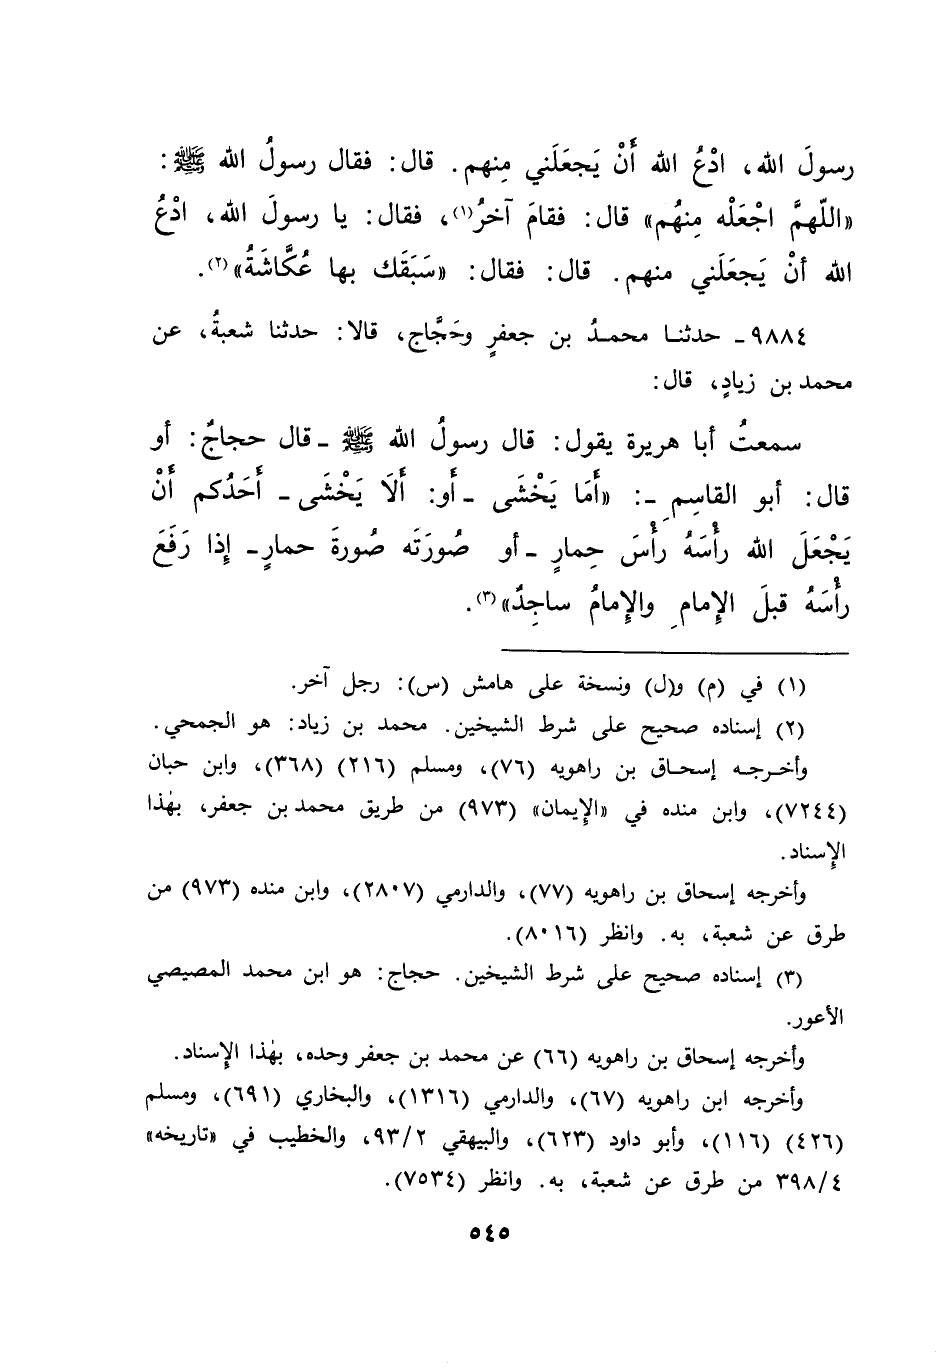 رسولَ الله، ادْعُ الله أَنْ يَجعَلَني مِنهم. قال: فقال رسولُ الله ﷺ:
«اللّهمَّ اجْعَلْه مِنهُم» قال: فقامَ آخرُ(١)، فقال: يا رسولَ الله، ادْعُ
الله أنْ يَجعَلَني منهم. قال: فقال: «سَبَقَك بها عُكَّاشَةُ»(٢).
٩٨٨٤ـ حدثنا محمدُ بن جعفرٍ وحَجَّاج، قالا: حدثنا شعبةُ، عن
محمد بن زيادٍ، قال:
سمعتُ أبا هريرة يقول: قال رسولُ الله ﷺ ـ قال حجاجٌ: أو
قال: أبو القاسِمِ ـ: «أَمَا يَخْشَى ـ أَو: أَلَا يَخْشَى ـ أَحَدُكم أَنْ
يَجْعَلَ الله رأْسَهُ رأْسَ حِمارٍ ـ أو صُورَتَه صُورةَ حمارٍـ إِذا رَفَعَ
رأْسَهُ قبلَ الإِمامِ والإِمامُ ساجِدٌ»(٣).
(١) في (م) و(ل) ونسخة على هامش (س): رجل آخر.
(٢) إسناده صحيح على شرط الشيخين. محمد بن زياد: هو الجمحي.
وأخرجه إسحاق بن راهويه (٧٦)، ومسلم (٢١٦) (٣٦٨)، وابن حبان
(٧٢٤٤)، وابن منده في «الإِيمان» (٩٧٣) من طريق محمد بن جعفر، بهٰذا
الإِسناد.
وأخرجه إسحاق بن راهويه (٧٧)، والدارمي (٢٨٠٧)، وابن منده (٩٧٣) من
طرق عن شعبة، به. وانظر (٨٠١٦).
(٣) إسناده صحيح على شرط الشيخين. حجاج: هو ابن محمد المصيصي
الأعور.
وأخرجه إسحاق بن راهويه (٦٦) عن محمد بن جعفر وحده، بهٰذا الإِسناد.
وأخرجه ابن راهويه (٦٧)، والدارمي (١٣١٦)، والبخاري (٦٩١)، ومسلم
(٤٢٦) (١١٦)، وأبو داود (٦٢٣)، والبيهقي ٩٣/٢، والخطيب في «تاريخه»
٣٩٨/٤ من طرق عن شعبة، به. وانظر (٧٥٣٤).
٥٤٥